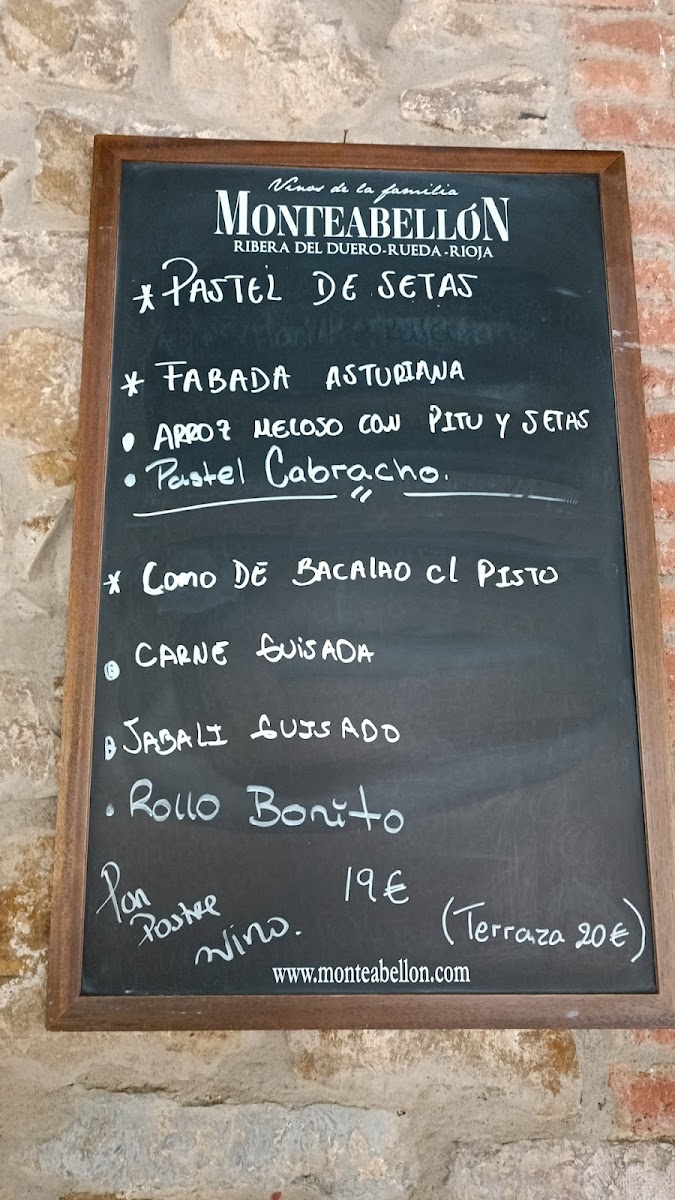 Vinos de la familia
MONTEABELLÓN
RIBERA DEL DUERO-RUEDA-RIOJA
* PASTEL DE SETAS
* FABADA ASTURIANA
• ARROZ MELOSO CON PITU Y SETAS
• Pastel Cabracho.
* LOMO DE BACALAO C/ PISTO
• CARNE GUISADA
• JABALI GUISADO
• Rollo Bonito
Pan
Postre
Vino.
19€
(Terraza 20€)
www.monteabellon.com